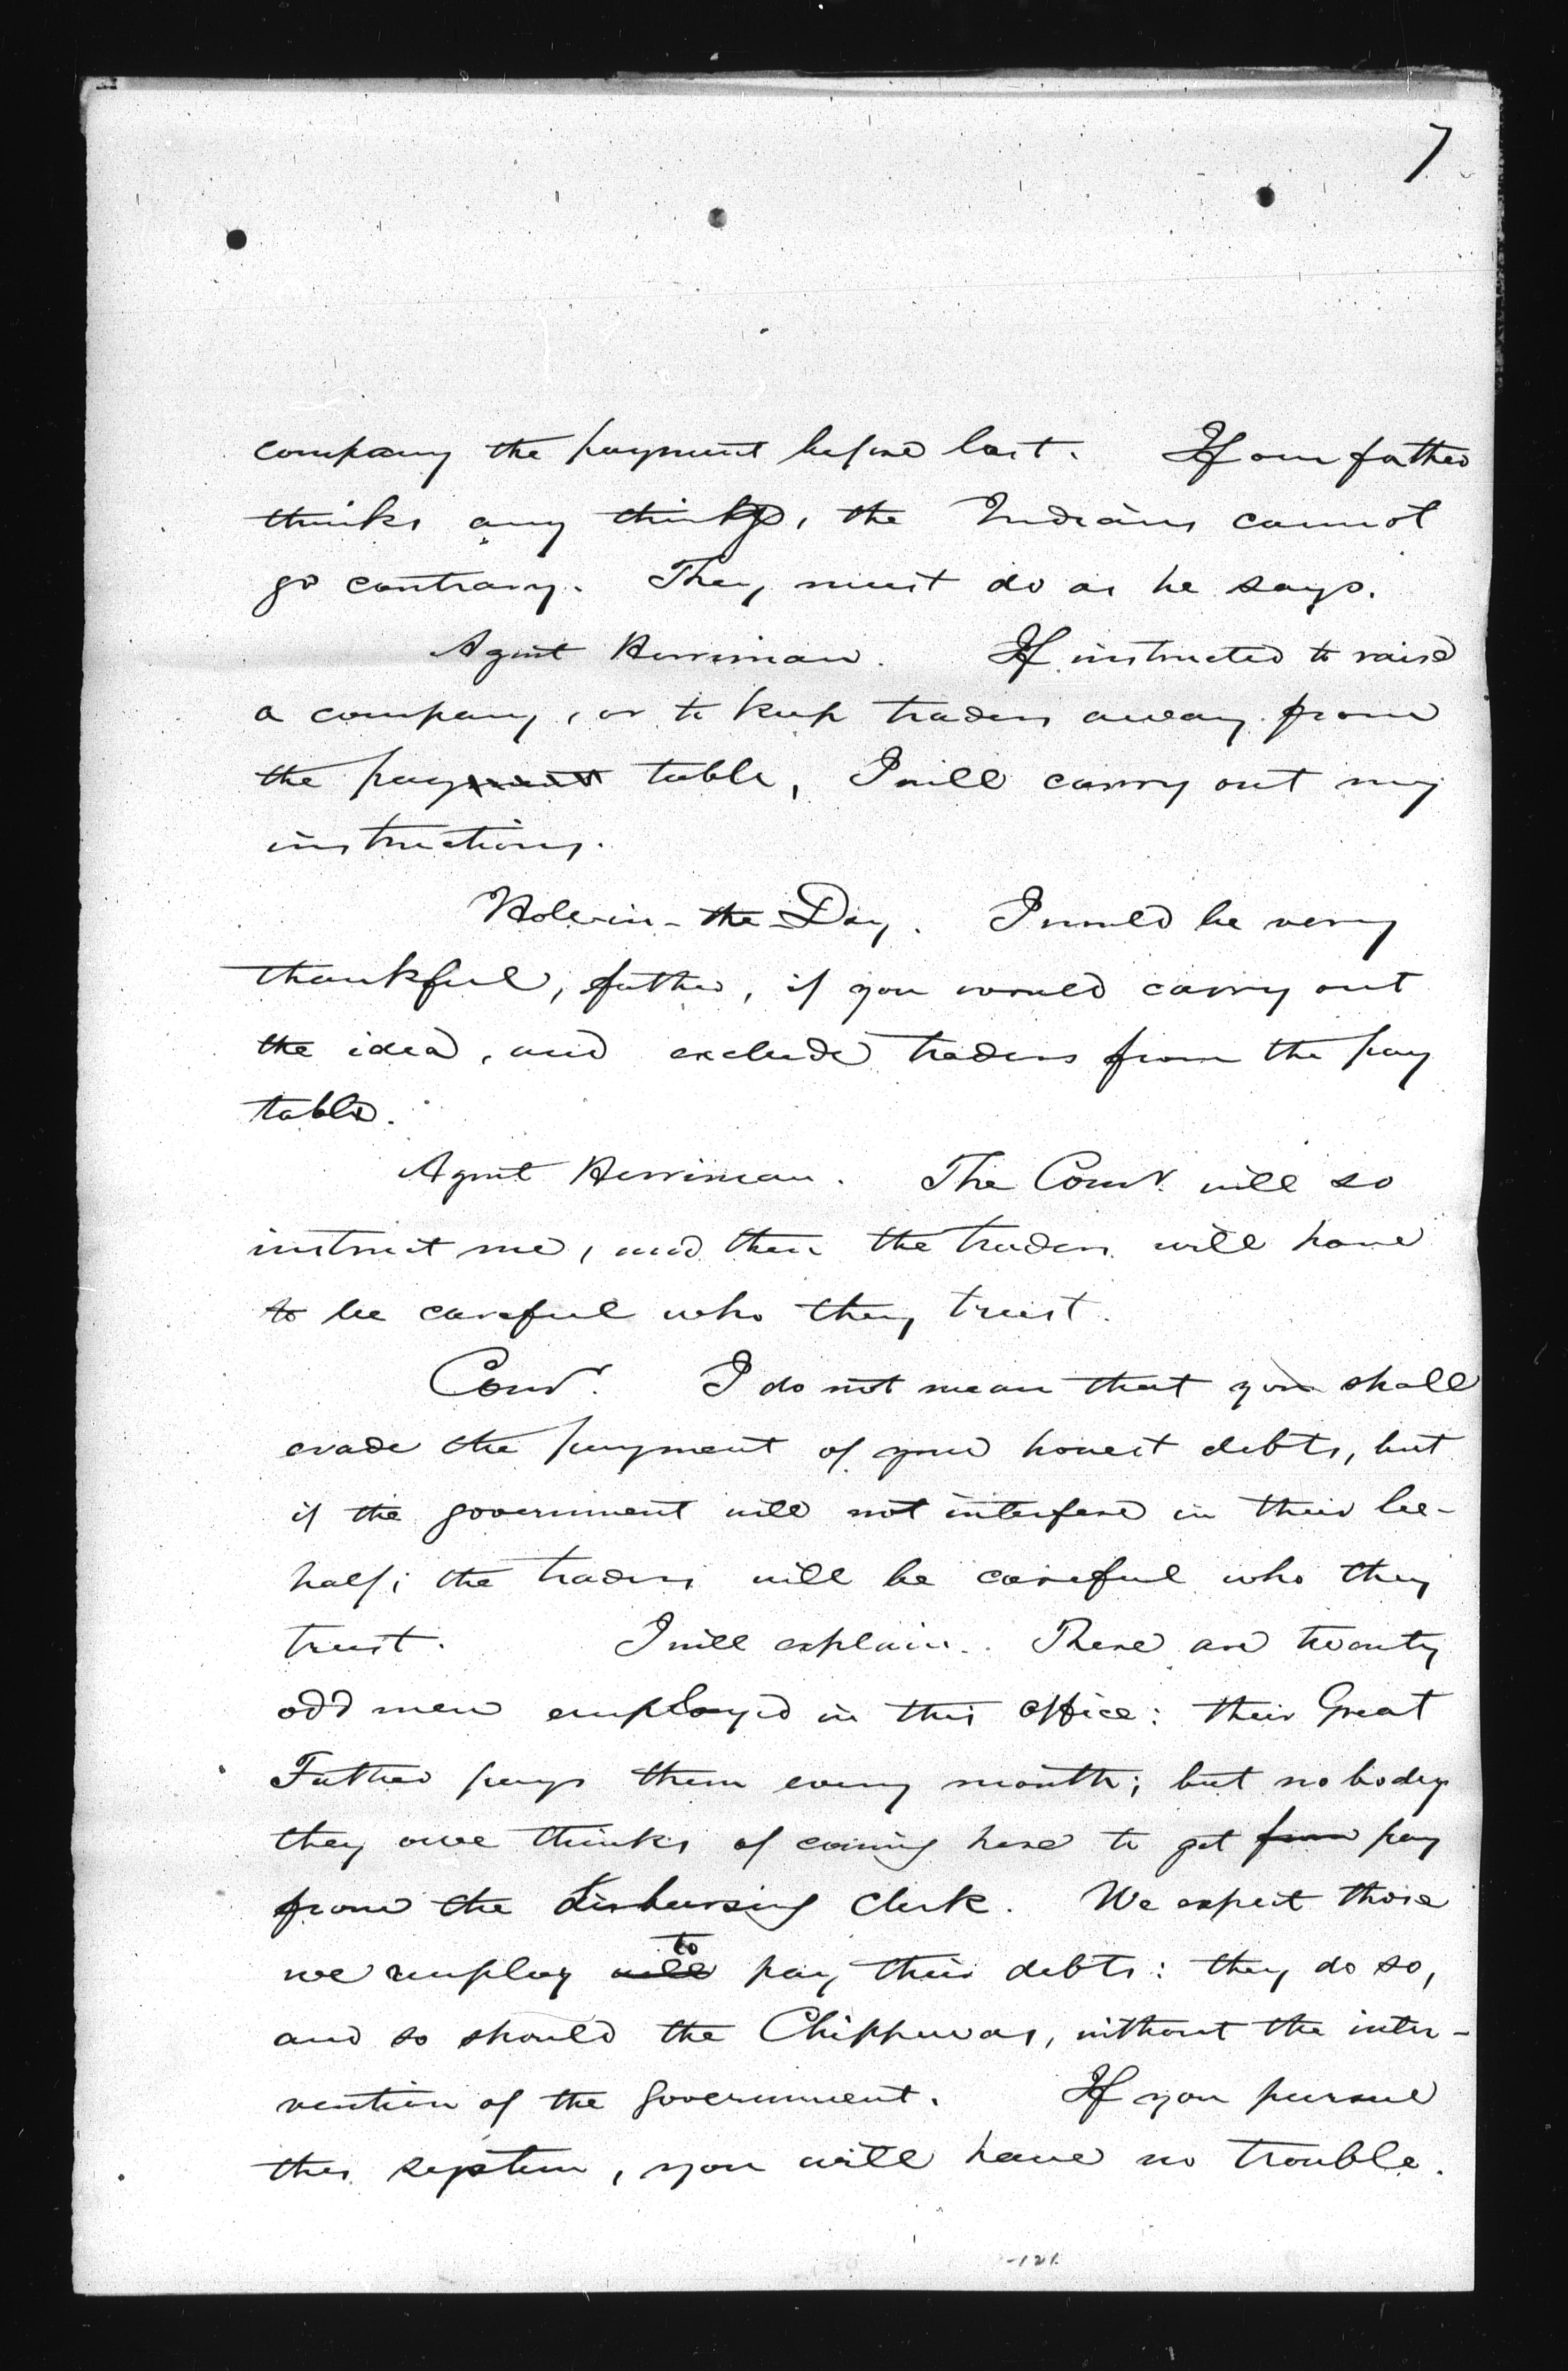 7
company the payment before last. If our father
thinks any thing, the Indians cannot
go contrary. They must do as he says.
Agent Herriman. If instructed to raise
a company, or to keep traders away from
the payment table, I will carry out my
instructions.
Hole-in-the-Day. I would be very
thankful, father, if you would carry out
the idea, and exclude traders from the pay
table.
Agent Herriman. The Comr. will so
instruct me, and then the traders will have
to be careful who they trust.
Comr. I do not mean that you shall
evade the payment of your honest debts, but
if the government will not interfere in their be-
half; the traders will be careful who they
trust. I will explain. There are twenty
odd men employed in this office: their Great
Father pays them every month; but no body
they owe thinks of coming here to get from pay
from the disbursing clerk. We expect those
we employ will to pay their debts: they do so,
and so should the Chippewas, without the inter-
vention of the government. If you pursue
this system, you will have no trouble.
-121.